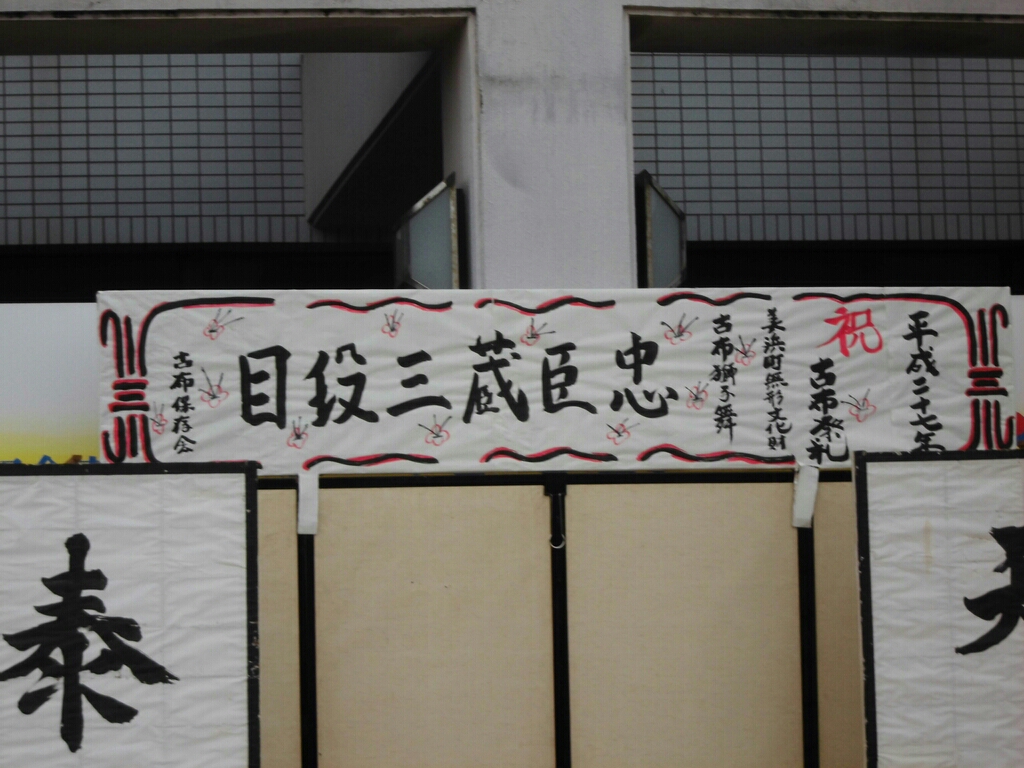 平成二十七年
祝
古布祭礼
美浜町無形文化財
古布獅子舞
忠臣蔵三段目
古布保存会
奉